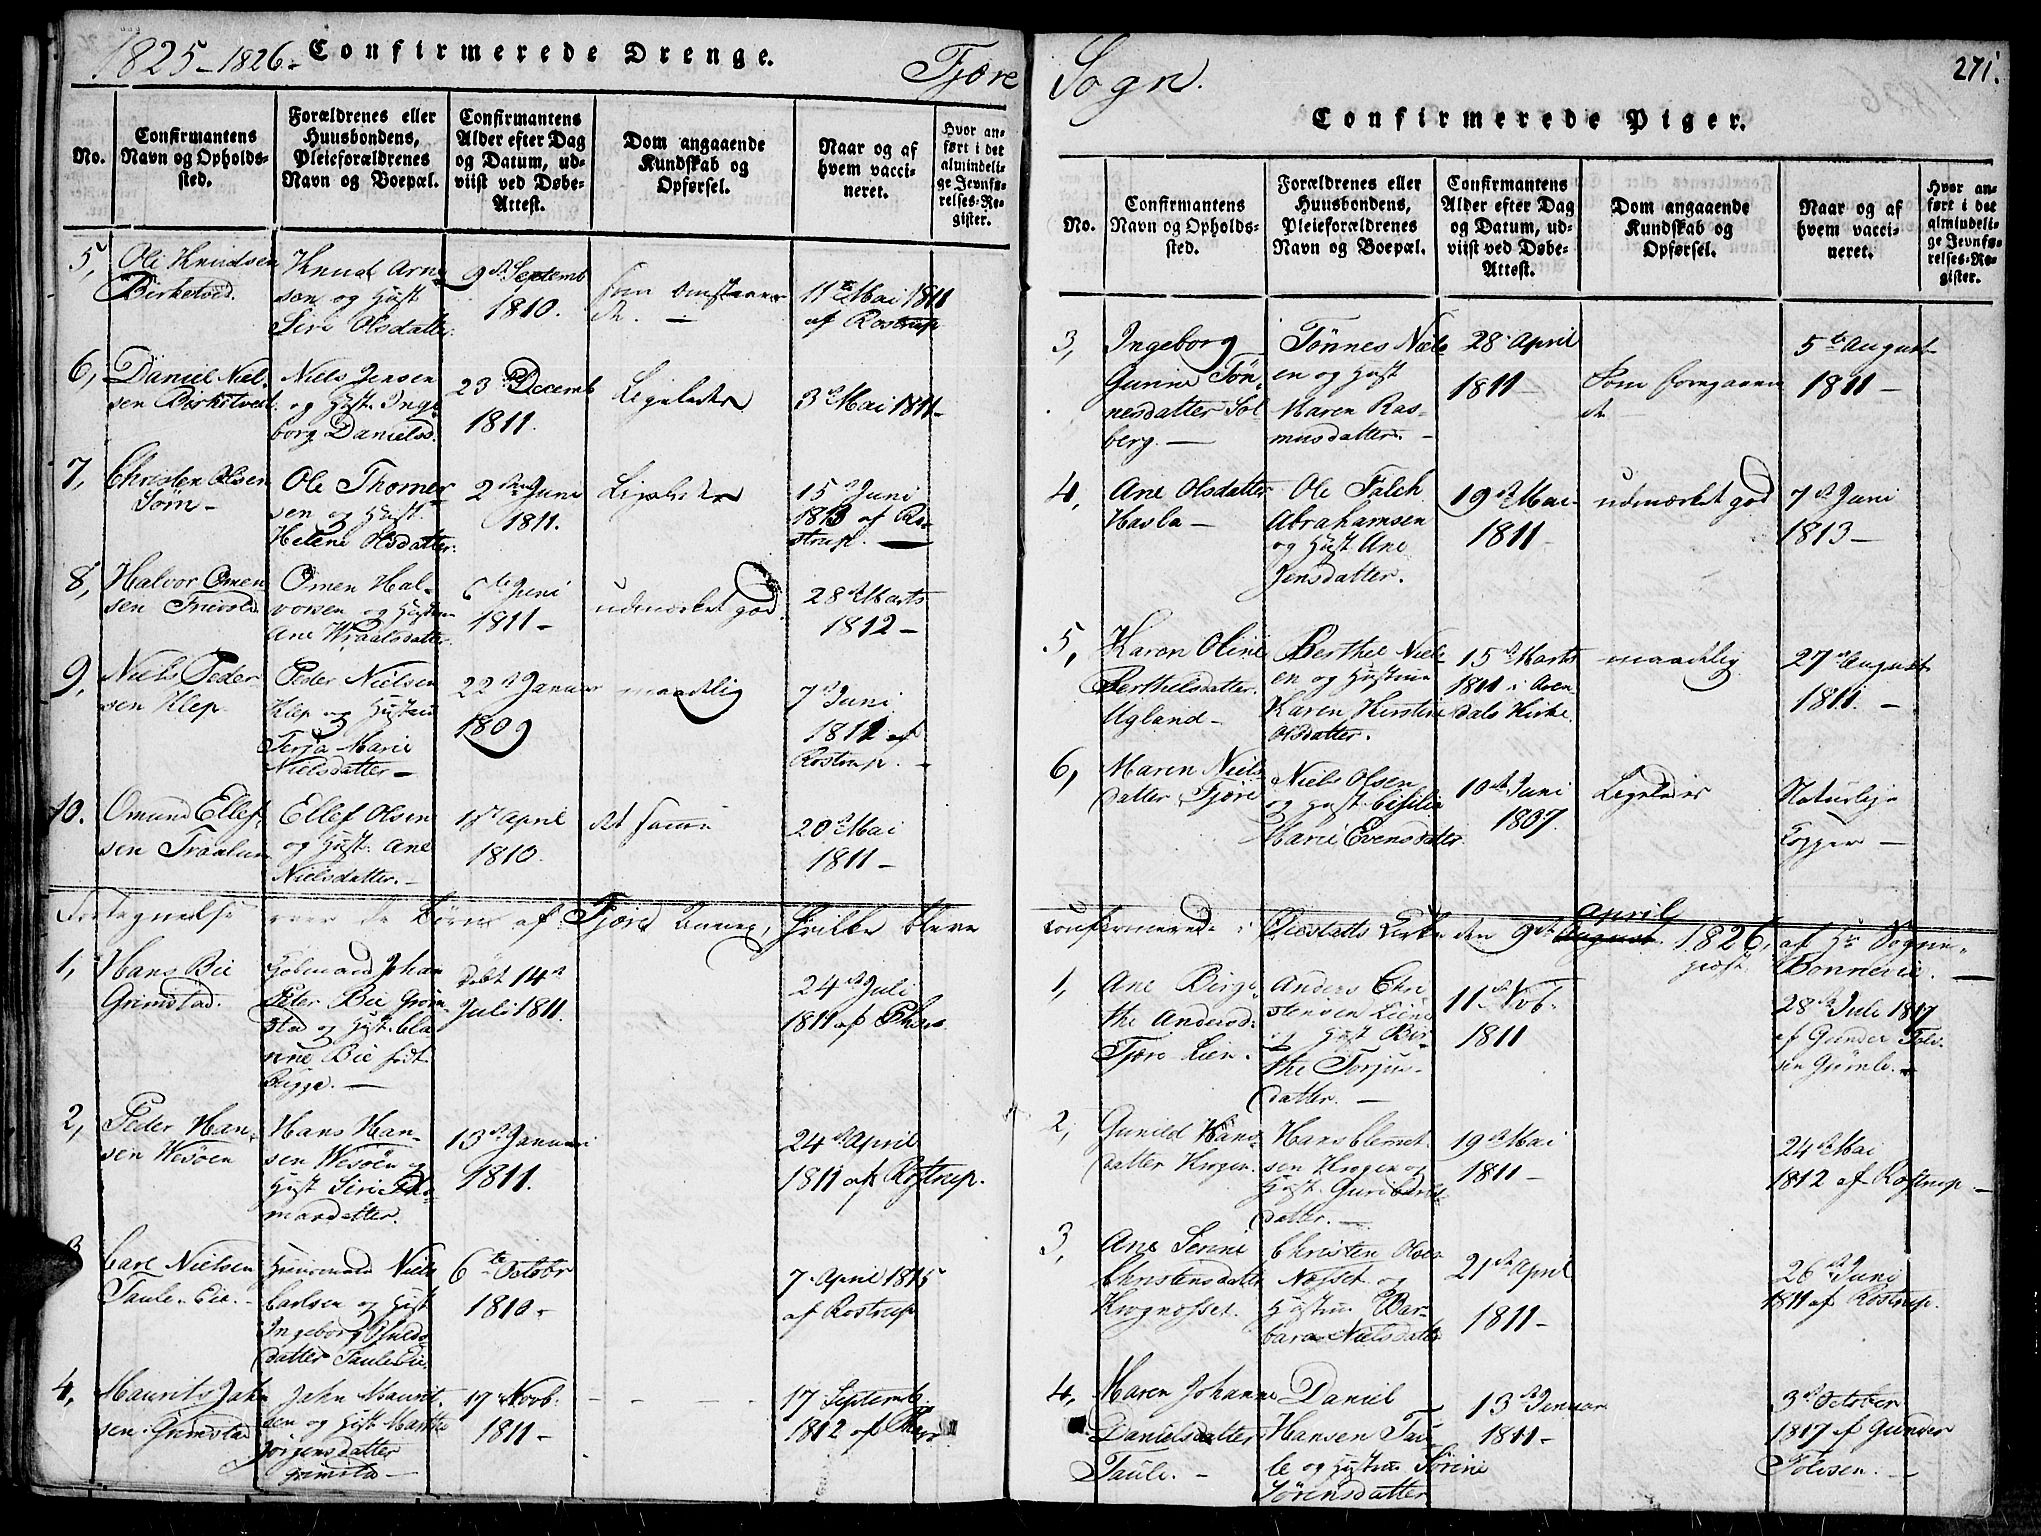 1825-1826. Confirmerede Drenge. Fjære
No.
Confirmantens
Navn og Opholds-
sted.
Forældrenes eller
Huusbondens,
Pleieforældrenes
Navn og Boepæl.
Confirmantens
Alder efter Dag
og Datum, ud-
viist ved Døbe-
Attest.
Dom angaaende
Kundskab og
Opførsel.
Naar og af
hvem vacci-
neret.
Hvor an-
ført i det
almindeli-
ge Jevnfø-
relses-Re-
gister.
5,
Ole Knudsen
Birketved.
Knud Arne
sen og Hust
Siri Olsdatter.
9de Septemb
1810.
11te Mai 1811
af Rostrup
6,
Daniel Niel-
sen Birketvedt.
Niels Jensen
og Hust. Inge
borg Danielsd.
23de Decemb
1811.
Ligeledes
3de Mai 1811-
7,
Christen Olsen
Sørn-
Ole Thomes
sen og Hust.
Helene Olsdatter.
2den Juni
1811.
Ligeledes
15de Juni
1813 af Ro-
strup. —
8,
Halvor Omen
sen Trevold
Omen Hal-
vorsen og Hustru
Ane Wraalsdatter
6te Juni
1811-
udmærket god.
28de Marts
1812-
9,
Niels Peder
sen Klep
Peder Nielsen
Klep og Hustru
Terja Marie
Nielsdatter-
22de Januar
1809
maadelig
7de Juni
1811 af
Rostrup. -
10.
Omund Ellef-
sen Traalum
Ellef Olsen
og Hust. Ane
Nielsdatter.-
1ste April
1810.
det samme
20de Mai
1811-
Fortegnelse over de Børn af Fjære Annex, hvilke bleve
1,
Hans Bie
Grimstad.
Johan
Peter Bie Grim
stad og Hust. Cla
rine Bie født
Bugge. —
Døbt 14de
Juli 1811.
24de Juli
1811 af
2,
Peder Han-
sen Wesøen
Hans Han-
sen Wesøen og
Hust Siri
mandatter.
13de Januari
1811.
24de April
1811 af Rostrup.
3
Carl Nielsen
Taule Eie.-
Huusmand Niels
Carlsen og Hust
Ingeborg
datter Taule Eie.
6te Octobr
1810-
7. April 1815
af Rostrup
4,
Maurits Jahn
sen Grimstad
Jahn Maurit-
sen og Hust Marthe
Jørgensdatter
Grimstad —
17 Novb.
1811-
17 Septemb.
1812 af
Sogn. 271.
Confirmerede Piger.
No.
Confirmantens
Navn og Opholds-
sted.
Forældrenes eller
Huusbondens,
Pleieforældrenes
Navn og Boepæl.
Confirmantens
Alder efter Dag
og Datum, ud-
viist ved Døbe-
Attest.
Dom angaaende
Kundskab og
Opførsel.
Naar og af
hvem vacci-
neret.
Hvor an-
ført i det
almindeli-
ge Jevnfø-
relses-Re-
gister.
3,
Ingeborg
Gurine Tøn-
nesdatter Sol
berg. —
Tønnes Niels
en og Hust
Maren Ras-
musdatter. -
28. April
1811 —
Som foregaaen
de
5te August
1811-
4,
Ane Olsdatter
Hasla-
Ole Falch
Abrahamsen
og Hust Ane
Jensdatter.
19de Mai-
1811-
udmærket god
7de Juni
1813-
5,
Karen Oline
Berthelsdatter.
Ugland-
Berthel Niels
en og Hustru
Karen Kirstine
Olsdatter.
15de Marts
1811 i Aren
dals Kirke.
maadelig
27de August
1811. -
6,
Maren Niels
datter Fjære
Niels Olsen
og Hust. Cisilia
Marie Evensdatter.
10de Juni
1807.
Ligeledes
Naturlige
Kopper -
confirmerede i Oiestads Kirke den 9de April 1826, af Hr Sogne-
præst Bonnevie. —
1,
Ane Birgi-
the Andersd:
Fjære Lien.
Anders Chri
stensen Liene
og Hust Bir-
the Torjus-
datter. —
11de Nob-
1811
28de Juli 1817
af Gunder Tole-
sen Grømle. -
2,
Gunild Hans-
datter Krogen.
Hans Clemet-
sen Krogen og
Hust. Guri
datter. —
19de Mai
1811-
24de Mai
1812 af Rostrup -
3,
Ane Serine
Christensdatter
Krognosset.
Christen Olsen
Nosset og
Hustru Bar-
bara Nielsdatter
21de April
1811-
26de Juni
1811 af Rostrup.
4,
Maren Johanne
Danielsdatter
Taule. -
Daniel
Hansen Tau-
le og Hustru Sørine
Sørensdatter
13de Januar
1811-
3de October
1817 af Gunder
Tolesen. —